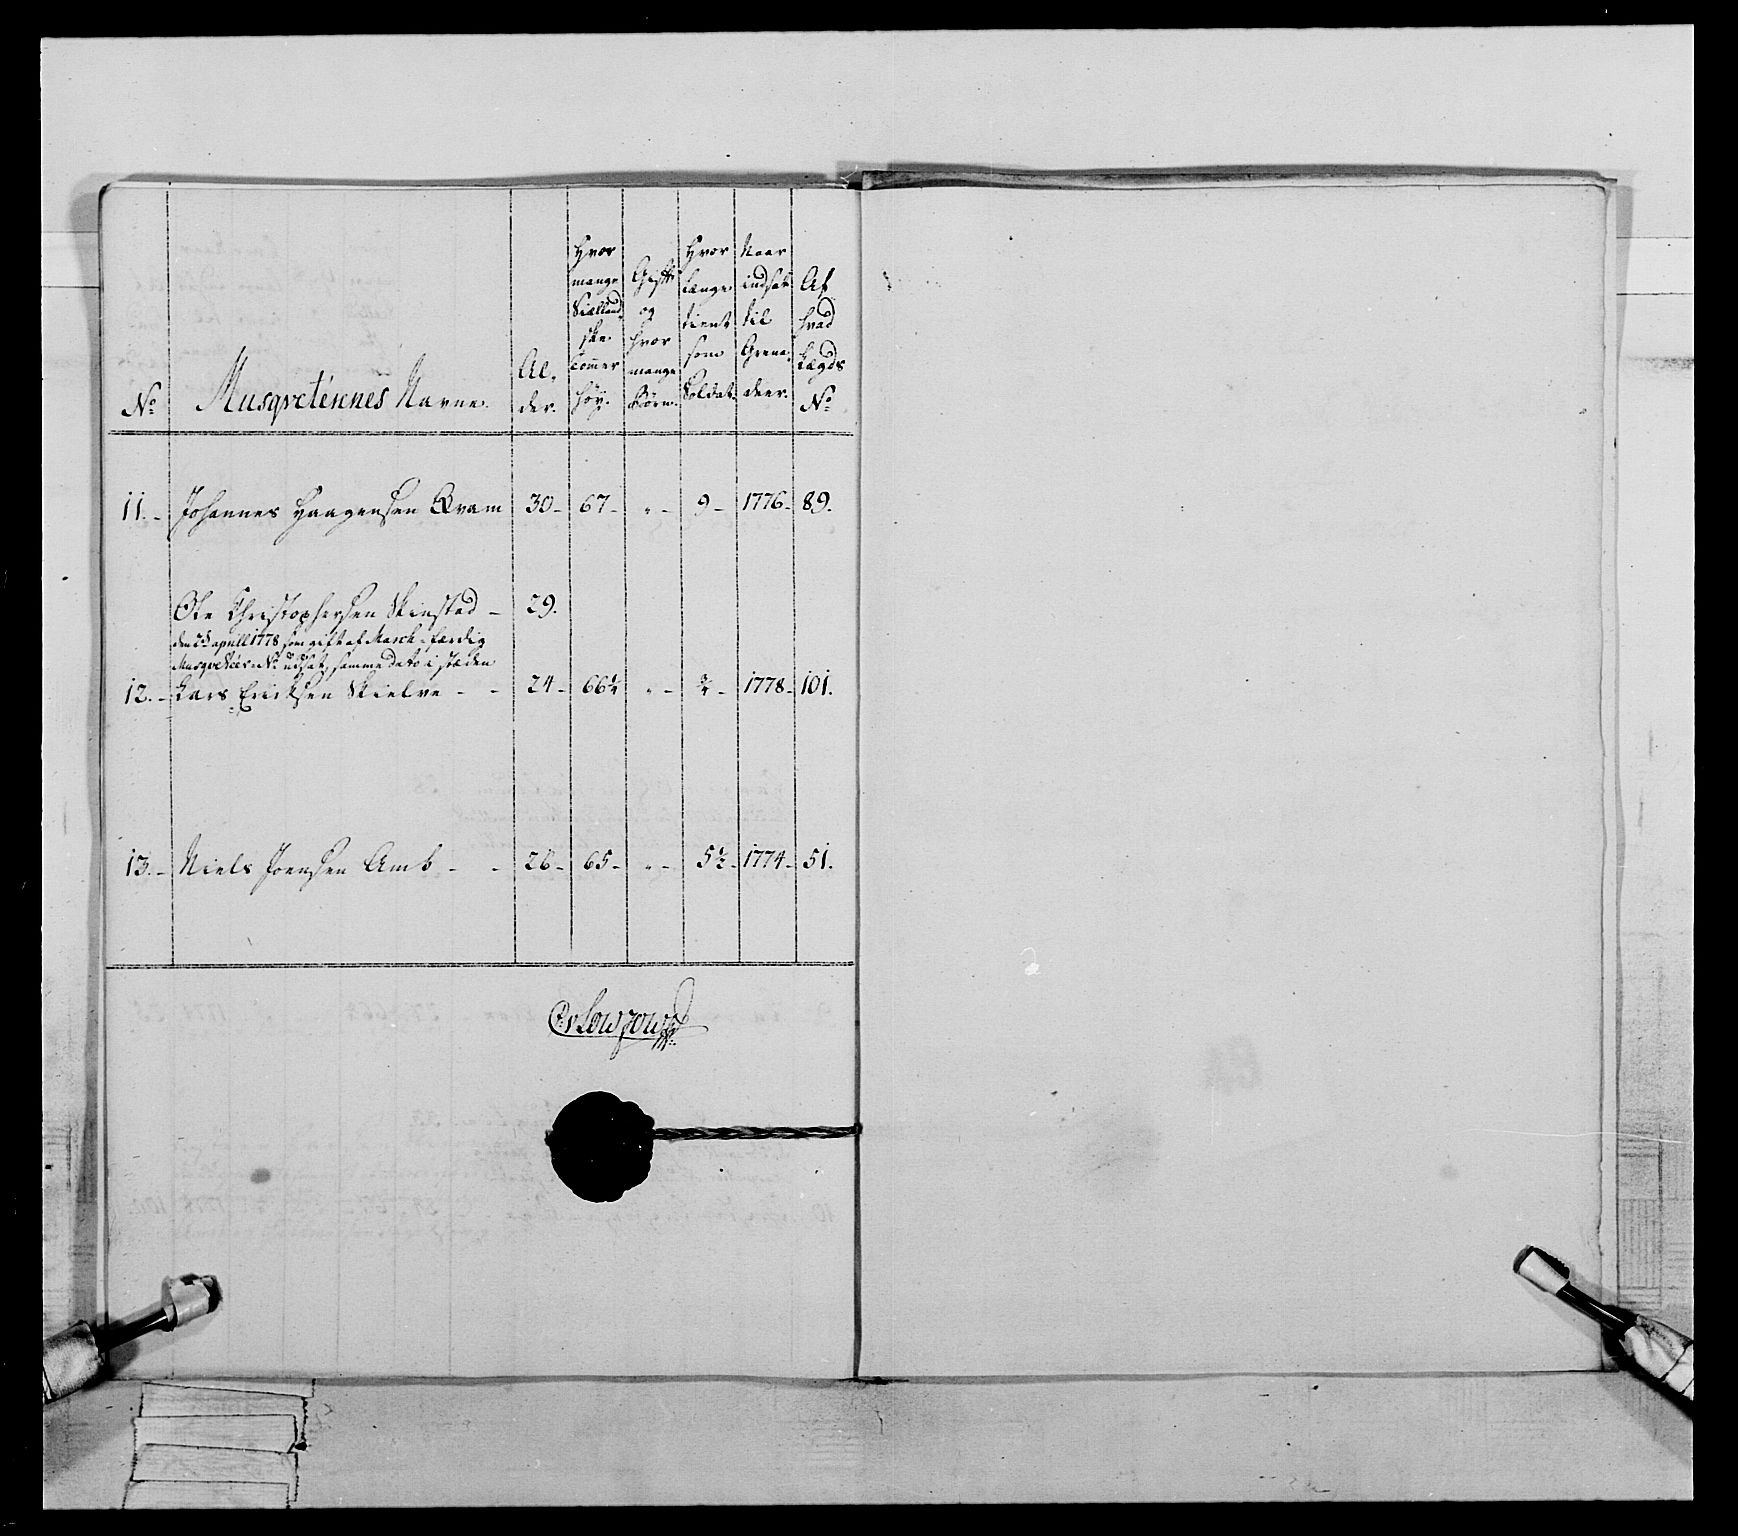 No
Musqveteernes Navne.
Al,
der.
Hvor
mange
Siælland,
ske
Tommer
høy.
Gift
og
hvor
mange
Børn.
Hvor
længe
tient
som
Soldat.
Naar
indsat
til
Grena,
deer.
Af
hvad
Lægds
No
11. Johannes Haagensen Qvam 30 67 " 9 1776 89.
Ole Christophersen Skinstad 29.
den 25 aprill 1778 som gift af March-færdig
Musqveteer No udsat, samme dato i stæden
12. Lars Ericksen Skielve 24 66 1/4 " 3/4 1778 101.
13. Niels Joensen Amb 26 65 " 5 1/2 1774 51.
C:v Lowzow